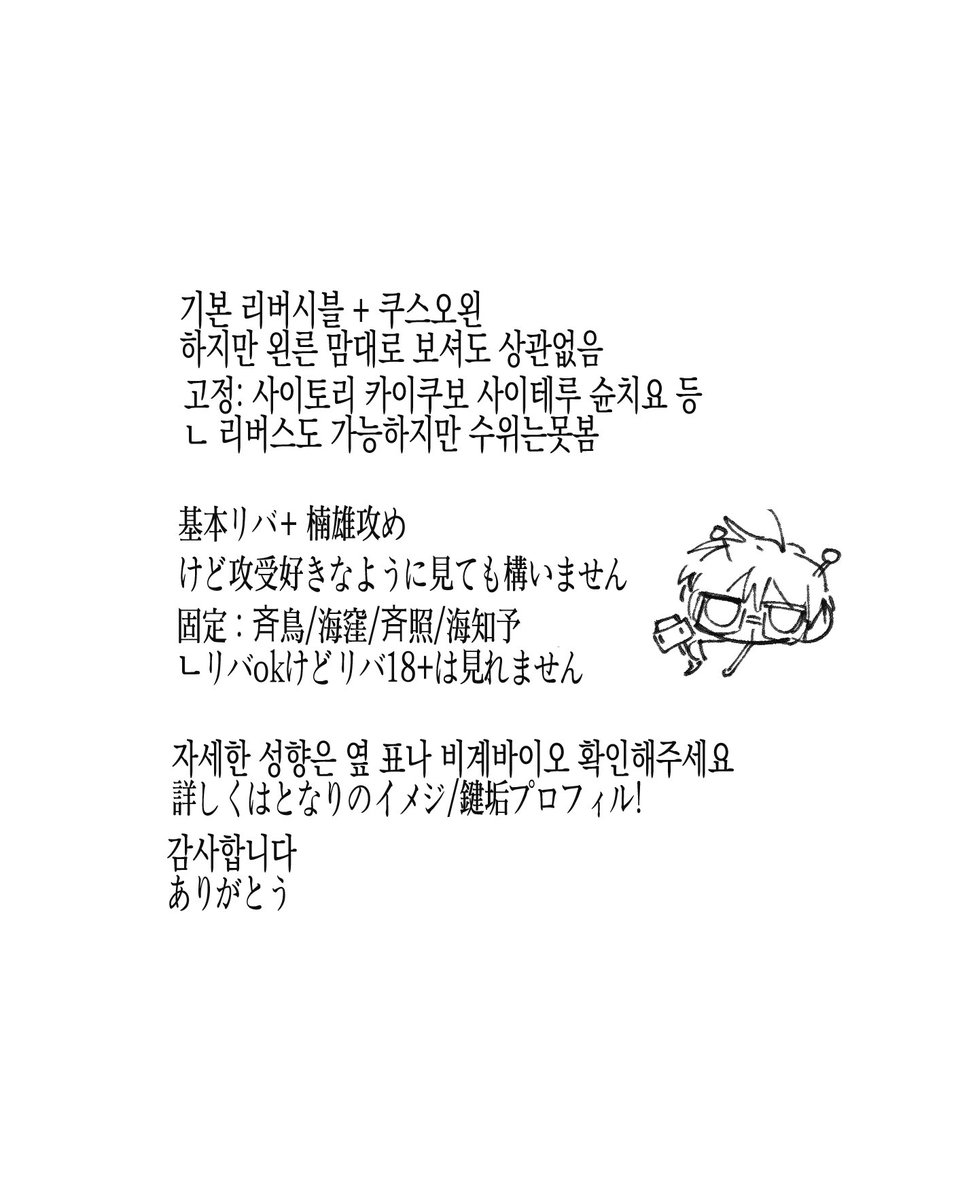 기본 리버시블 + 쿠스오왼
하지만 왼른 맘대로 보셔도 상관없음
고정: 사이토리 카이쿠보 사이테루 슌치요 등
ㄴ 리버스도 가능하지만 수위는못봄
基本リバ+ 楠雄攻め
けど攻受好きなように見ても構いません
固定：斉鳥/海窪/斉照/海知予
ㄴリバokけどリバ18+は見れません
자세한 성향은 옆 표나 비계바이오 확인해주세요
詳しくはとなりのイメジ/鍵垢プロフィル!
감사합니다
ありがとう